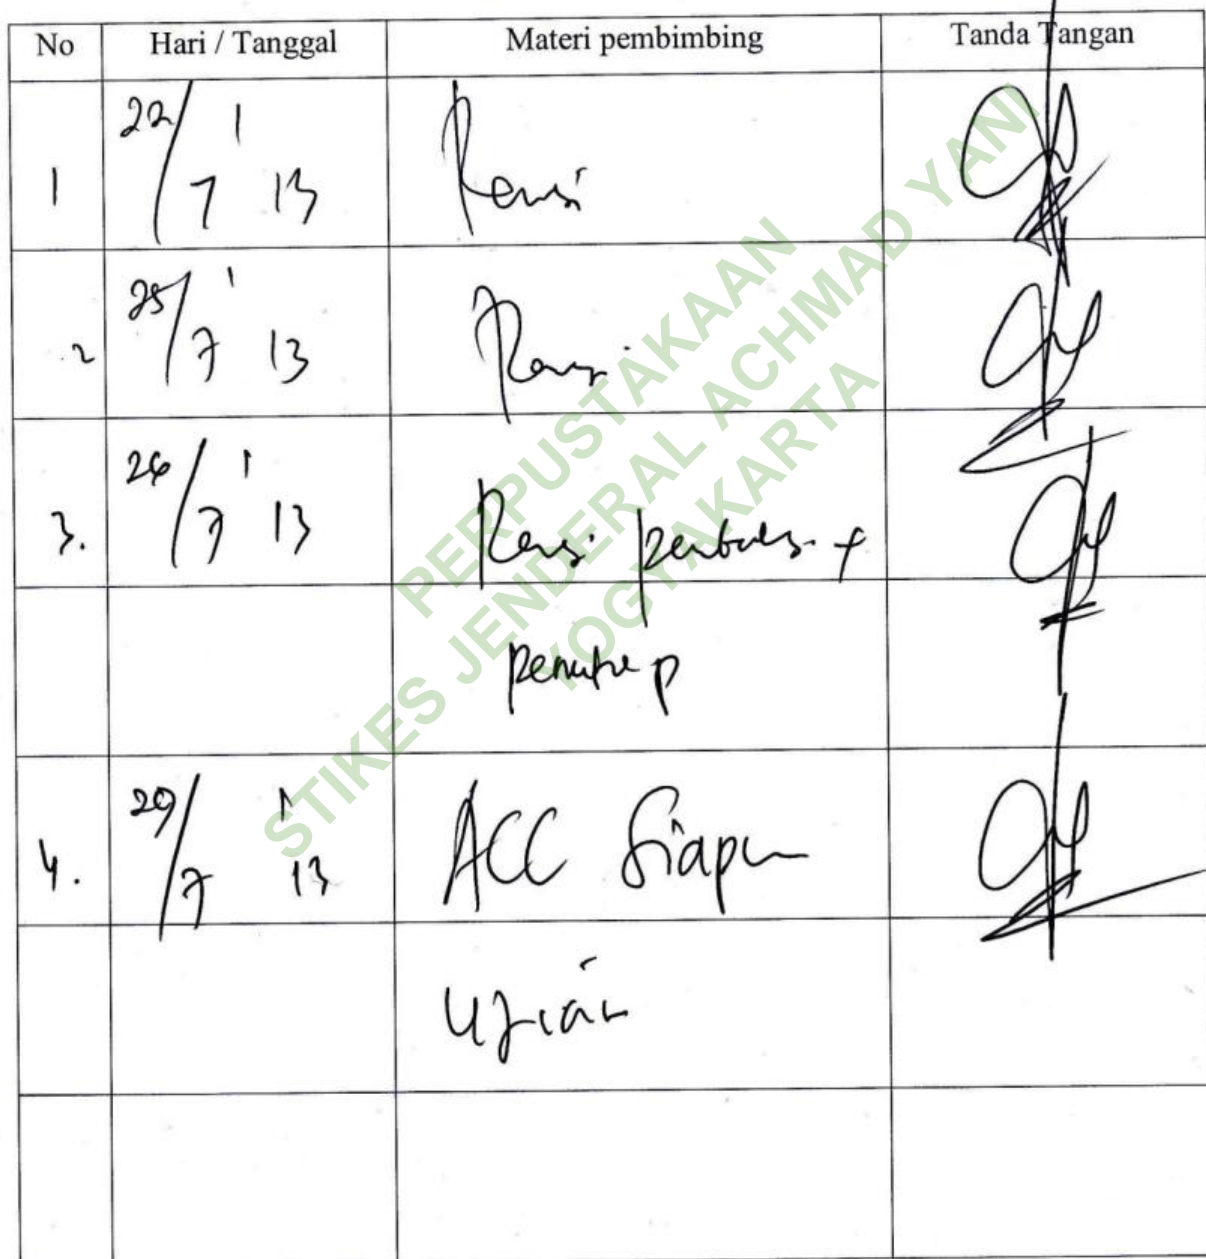 No Hari / Tanggal Materi pembimbing Tanda Tangan
1 22/7 13 Revisi
2 25/7 13 Revisi
3. 26/7 13 Revisi +
penutup
4. 29/7 13 ACC Siapn
Ujian
PERPUSTAKAAN
STIKES JENDERAL ACHMAD YANI
YOGYAKARTA